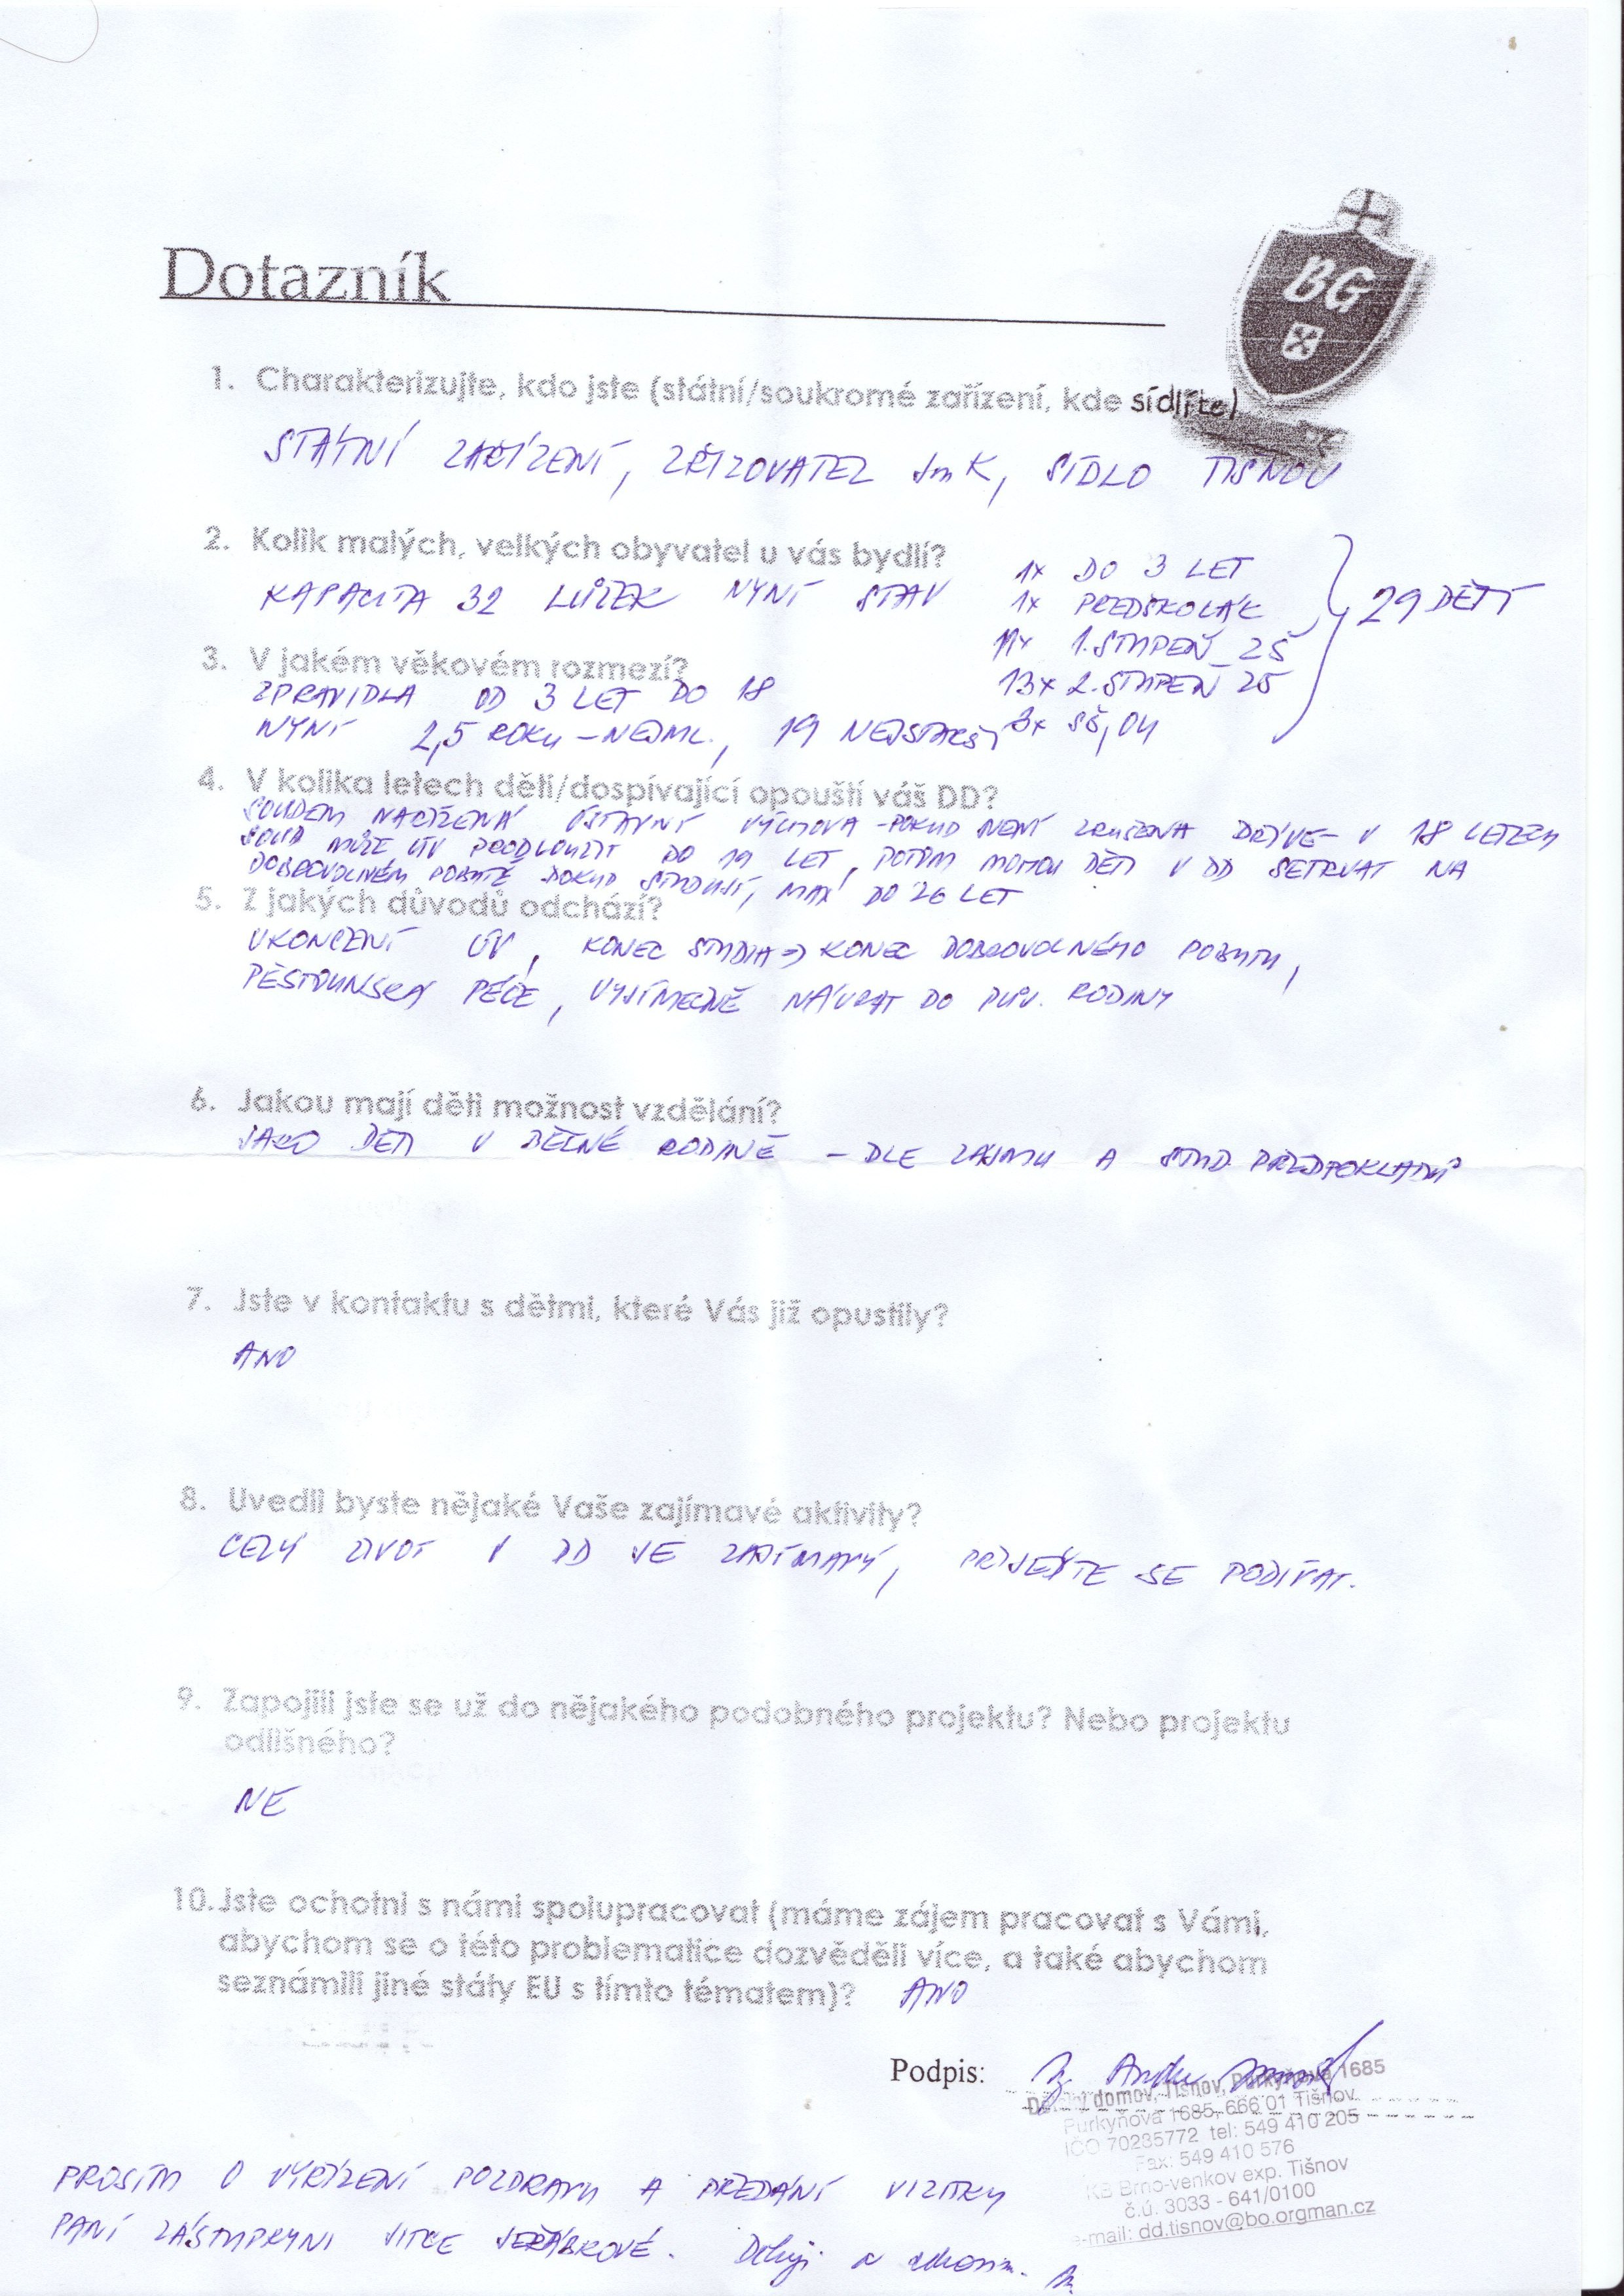 Dotazník
BG
1. Charakterizujte, kdo jste (státní/soukromé zařízení, kde sídlíte)
STÁTNÍ ZAŘÍZENÍ, ZŘIZOVATEL JmK, SÍDLO TIŠNOV
2. Kolik malých, velkých obyvatel u vás bydlí?
KAPACITA 32 LŮŽEK NYNÍ STAV
1x DO 3 LET
1x PŘEDŠKOLÁK
11x 1. STUPEŇ ZŠ
13x 2. STUPEŇ ZŠ
3x SŠ, OU
29 DĚTÍ
3. V jakém věkovém rozmezí?
ZPRAVIDLA OD 3 LET DO 18
NYNÍ 2,5 ROKU – NEJML., 19 NEJSTARŠÍ
4. V kolika letech děti/dospívající opouští váš DD?
SOUDEM NAŘÍZENÁ ÚSTAVNÍ VÝCHOVA - POKUD NENÍ ZRUŠENA DŘÍVE - V 18 LETECH
SOUD MŮŽE ÚV PRODLOUŽIT DO 19 LET, POTOM MOHOU DĚTI V DD SETRVAT NA
DOBROVOLNÉM POBYTĚ POKUD STUDUJÍ, MAX DO 26 LET
5. Z jakých důvodů odchází?
UKONČENÍ ÚV, KONEC STUDIA => KONEC DOBROVOLNÉHO POBYTU,
PĚSTOUNSKÁ PÉČE, VYJÍMEČNĚ NÁVRAT DO PŮV. RODINY
6. Jakou mají děti možnost vzdělání?
JAKO DĚTI V BĚŽNÉ RODINĚ – DLE ZÁJMU A STUD. PŘEDPOKLADŮ
7. Jste v kontaktu s dětmi, které Vás již opustily?
ANO
8. Uvedli byste nějaké Vaše zajímavé aktivity?
CELÝ ŽIVOT V DD JE ZAJÍMAVÝ, PŘIJEĎTE SE PODÍVAT.
9. Zapojili jste se už do nějakého podobného projektu? Nebo projektu
odlišného?
NE
10. Jste ochotni s námi spolupracovat (máme zájem pracovat s Vámi,
abychom se o této problematice dozvěděli více, a také abychom
seznámili jiné státy EU s tímto tématem)? ANO
Podpis:
Dětský domov, Tišnov, Purkyňova 1685
Purkyňova 1685, 666 01 Tišnov
IČO 70285772 tel: 549 410 205
Fax: 549 410 576
KB Brno-venkov exp. Tišnov
č.ú. 3033 - 641/0100
e-mail: dd.tisnov@bo.orgman.cz
PROSÍM O VYŘÍZENÍ POZDRAVU A PŘEDÁNÍ VIZITKY
PANÍ ZÁSTUPKYNI JITCE JEŘÁBKOVÉ. Děkuji a zdravím.